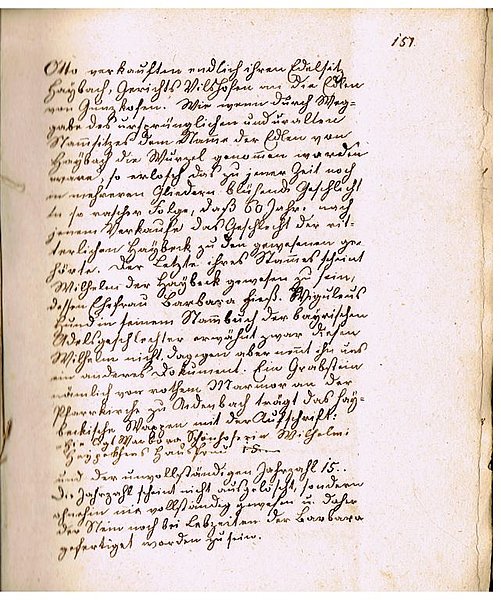 151.
Otto verkauften endlich ihren Edelsitz
Haÿbach, Gerichts Vilshofen an die Edlen
von Gunzkofen. Wie wenn durch Weg-
gabe des ursprünglichen und uralten
Stammsitzes dem Stame der Edlen von
Haÿbach die Wurzel genommen worden
wäre, so erlosch das zu jener Zeit noch
in mehreren Gliedern blühende Geschlecht
in so rascher Folge, daß 60 Jahre nach
jenem Verkaufe das Geschlecht der rit-
terlichen Haÿbeck zu den gewesenen ge-
hörte. Der Letzte ihres Stammes scheint
Wilhelm der Haÿbeck gewesen zu sein,
dessen Ehefrau Barbara hieß. Wiguleus
Hund in seinem Stammbuch der bayrischen
Adelsgeschlechter erwähnt zwar diesen
Wilhelm nicht, dagegen aber nennt ihn uns
ein anderes Dokument. Ein Grabstein
nämlich von rothem Marmor an der
Pfarrkirche zu Aidenbach trägt das haÿ-
beckische Wappen mit der Aufschrift:
Barbara Schönhoferin Wilhelm
Haÿpekhens Hausfrau
und der unvollständigen Jahrzahl 15..
Die Jahrzahl scheint nicht ausgelöscht, sondern
ohnehin nie vollständig gewesen u. daher
der Stein noch bei Lebzeiten der Barbara
gefertiget worden zu sein.